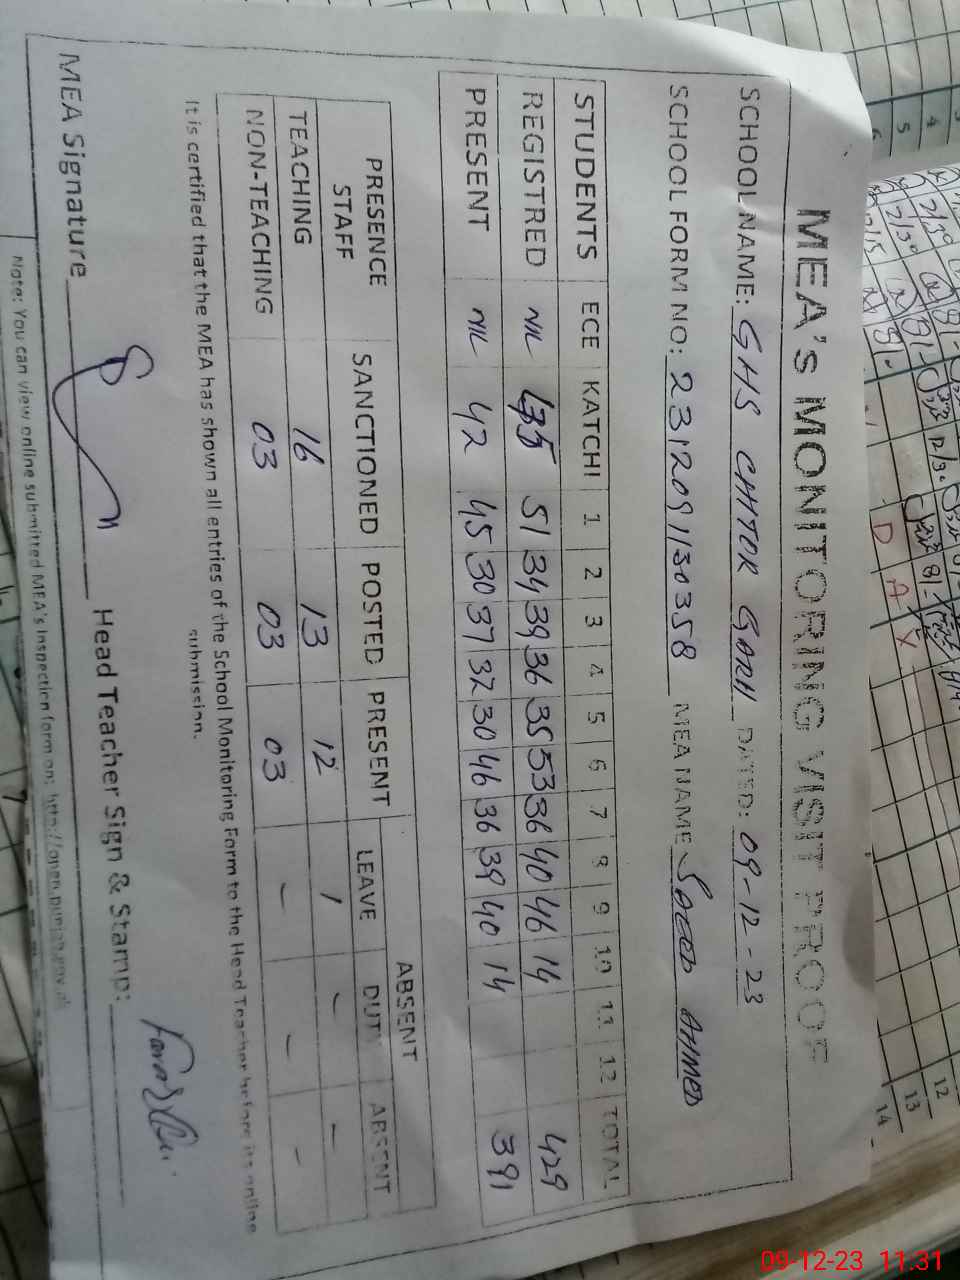 MEA's MONITORING VISIT PROOF
SCHOOL NAME: GHS CHTOR GARH DATED: 09-12-23
SCHOOL FORM NO: 2312091130358 MEA NAME Saeed AHMED
STUDENTS ECE KATCHI 1 2 3 4 5 6 7 8 9 10 11 12 TOTAL
REGISTRED NIL 51 34 39 36 35 53 36 40 46 14 429
PRESENT NIL 42 45 30 37 32 30 46 36 39 40 14 391
PRESENCE STAFF SANCTIONED POSTED PRESENT ABSENT
LEAVE DUTY ABSENT
TEACHING 16 13 12 1 - -
NON-TEACHING 03 03 03 - - -
It is certified that the MEA has shown all entries of the School Monitoring Form to the Head Teacher before its online
submission.
MEA Signature Head Teacher Sign & Stamp:
Note: You can view online submitted MEA's Inspection form on: http://open.punjab.gov.pk
3
4
5
6
12
13
14
D A X
09-12-23 11:31